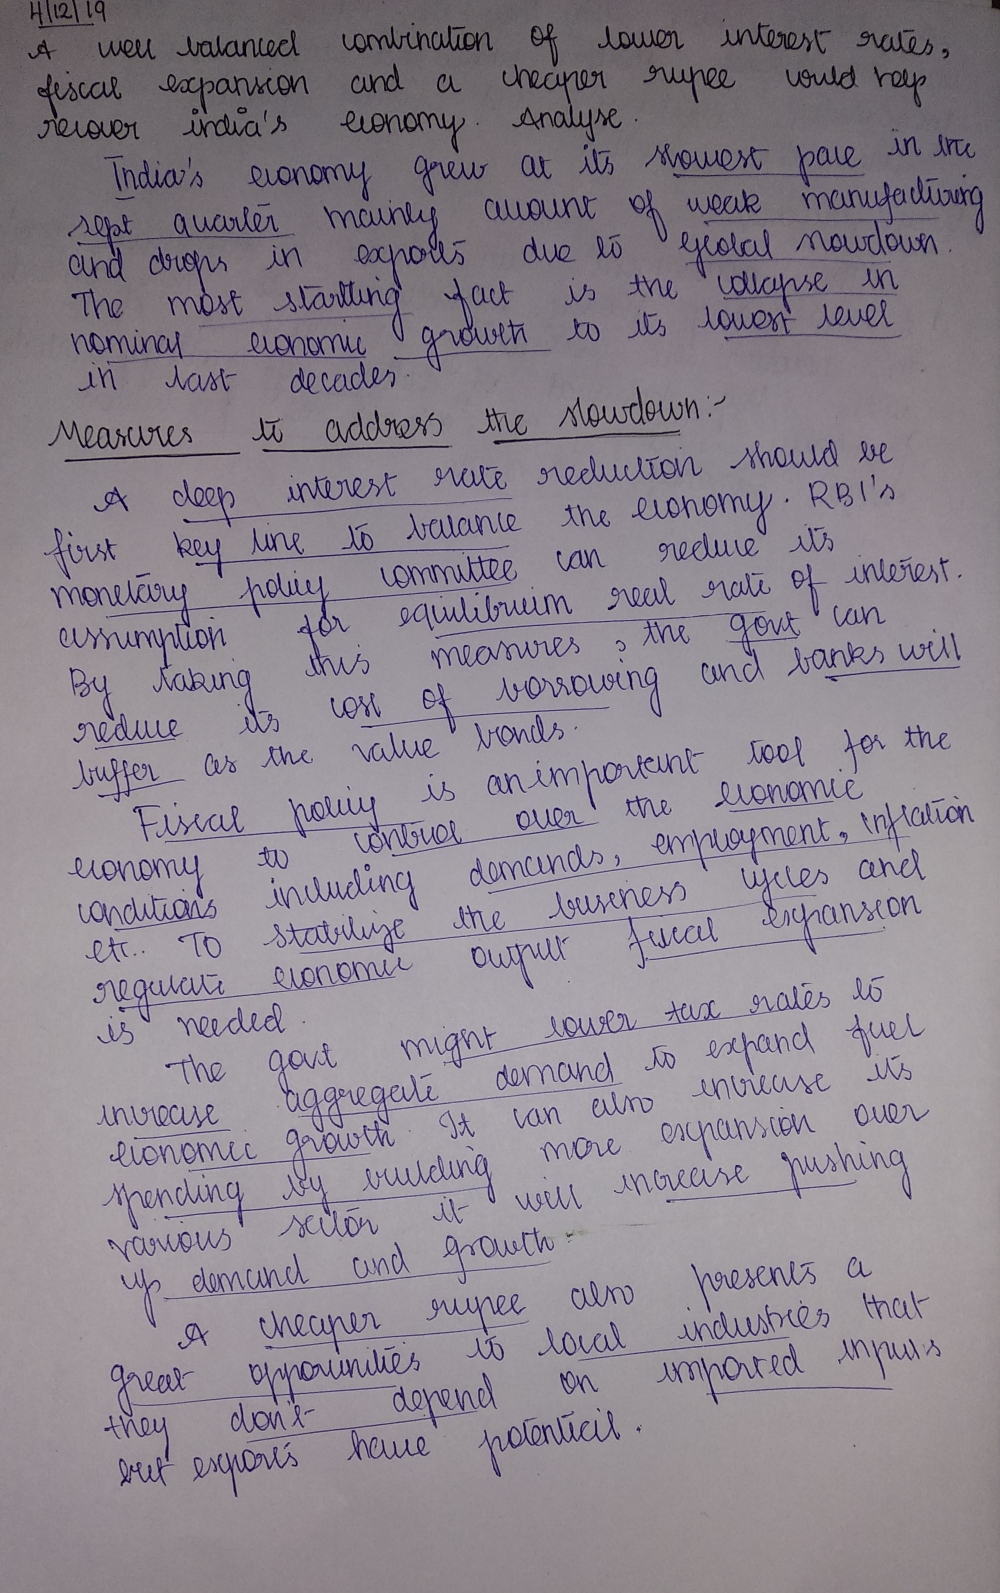 4/12/19
A well balanced combination of lower interest rates,
fiscal expansion and a cheaper rupee would help
recover india's economy. Analyse.
India's economy grew at its slowest pace in the
sept quarter mainly amount of weak manufacturing
and drops in exports due to global slowdown.
The most startling fact is the collapse in
nominal economic growth to its lowest level
in last decades.
Measures to address the slowdown:-
A deep interest rate reduction should be
first key line to balance the economy. RBI's
monetary policy committee can reduce its
assumption for equilibrium real rate of interest.
By taking this measures, the govt can
reduce its cost of borrowing and banks will
buffer as the value bonds.
Fiscal policy is an important tool for the
economy to control over the economic
conditions including demands, employment, inflation
etc.. To stabilize the business cycles and
regulate economic output fiscal expansion
is needed.
The govt might lower tax rates to
increase aggregate demand to expand fuel
economic growth. It can also increase its
spending by building more expansion over
various sector it will increase pushing
up demand and growth.
A cheaper rupee also presents a
great opportunities to local industries that
they don't depend on imported inputs
but exports have potential.